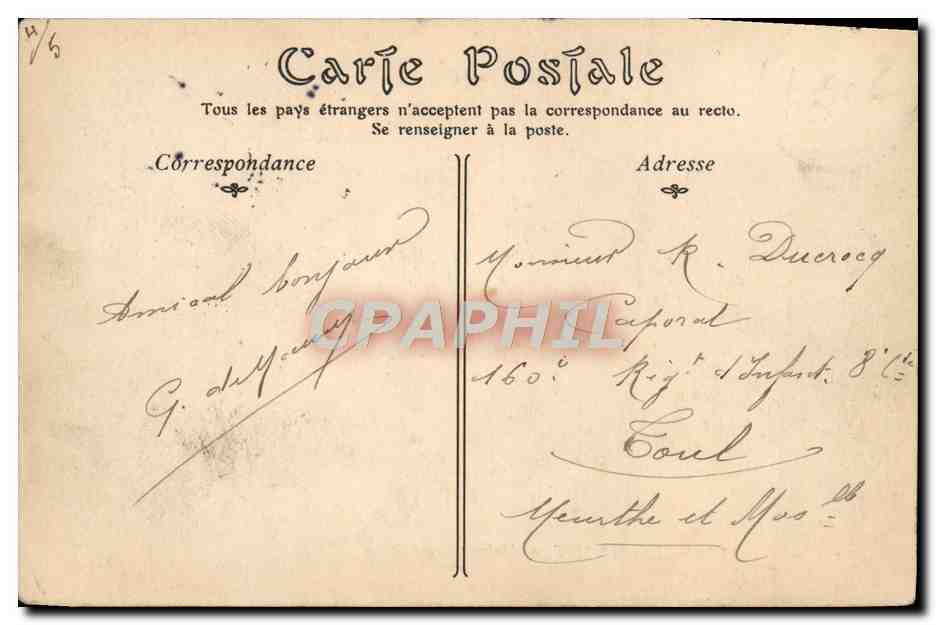 4/5
Carte Postale
Tous les pays étrangers n'acceptent pas la correspondance au recto.
Se renseigner à la poste.
Correspondance
Amical bonjour
G. de
Adresse
Monsieur R. Ducrocq
Caporal
160e Régt d'Infant. 8e Cie
Toul
Meurthe et Moselle
CPAPHIL